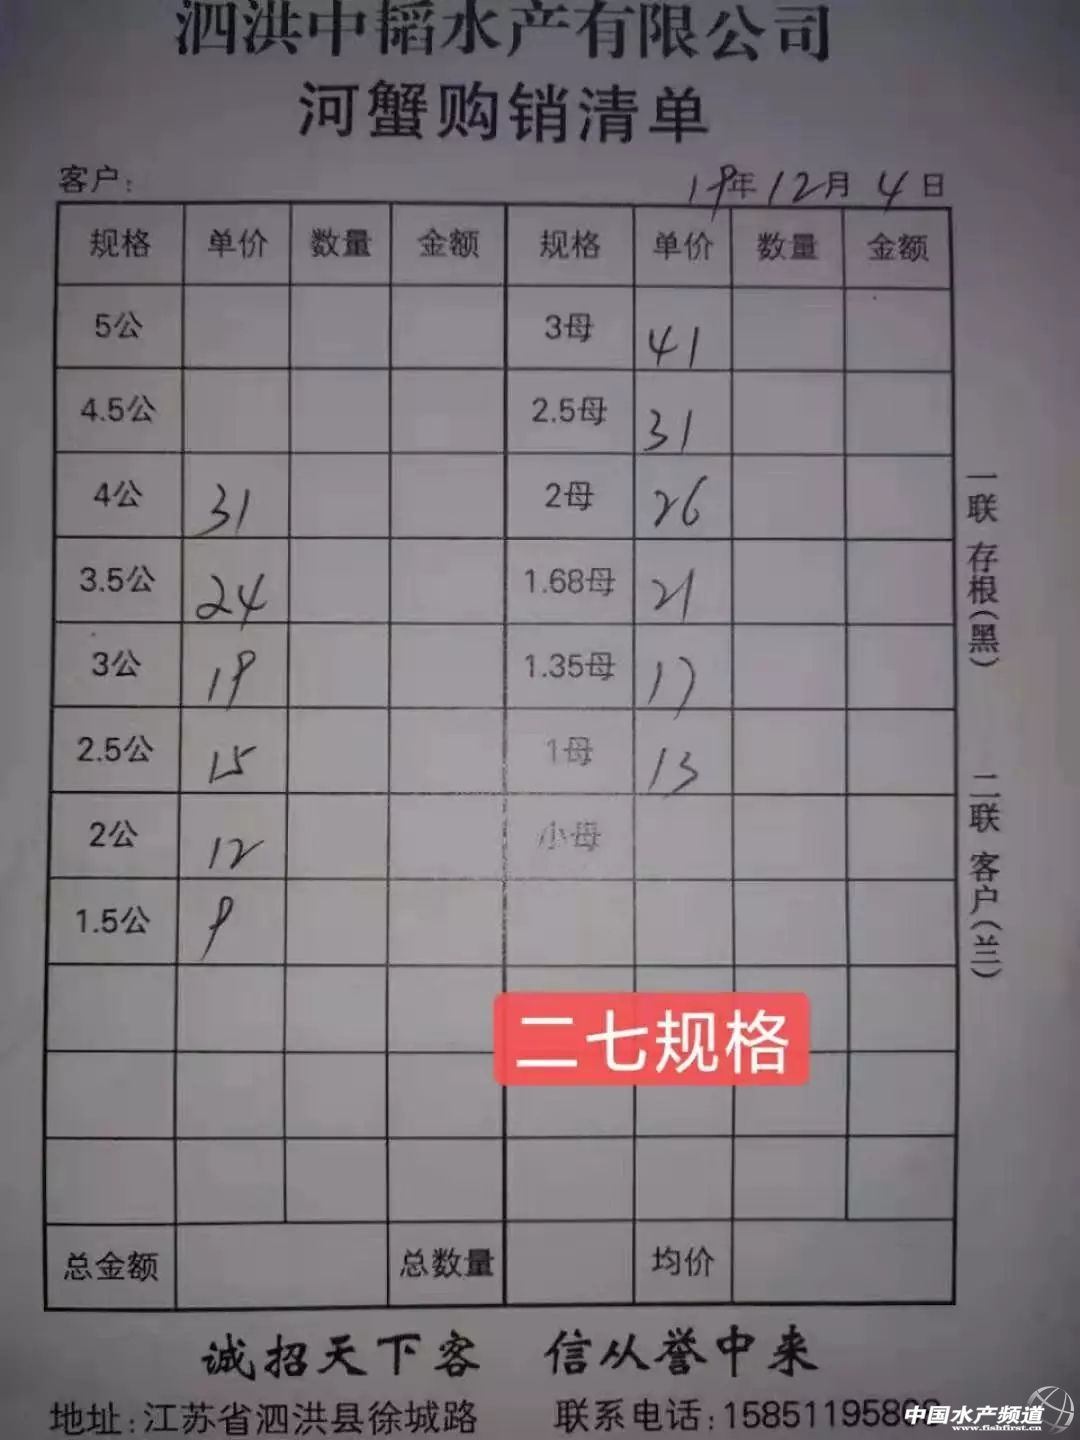 泗洪中韬水产有限公司
河蟹购销清单
客户: 19年12月4日
规格 单价 数量 金额 规格 单价 数量 金额
5公 3母 41
4.5公 2.5母 31
4公 31 2母 26
3.5公 24 1.68母 21
3公 19 1.35母 17
2.5公 15 1母 13
2公 12 小母
1.5公 9
一联 存根(黑) 二联 客户(兰)
二七规格
总金额 总数量 均价
诚招天下客 信从誉中来
地址:江苏省泗洪县徐城路 联系电话:158511958
中国水产频道
www.fishfirst.cn